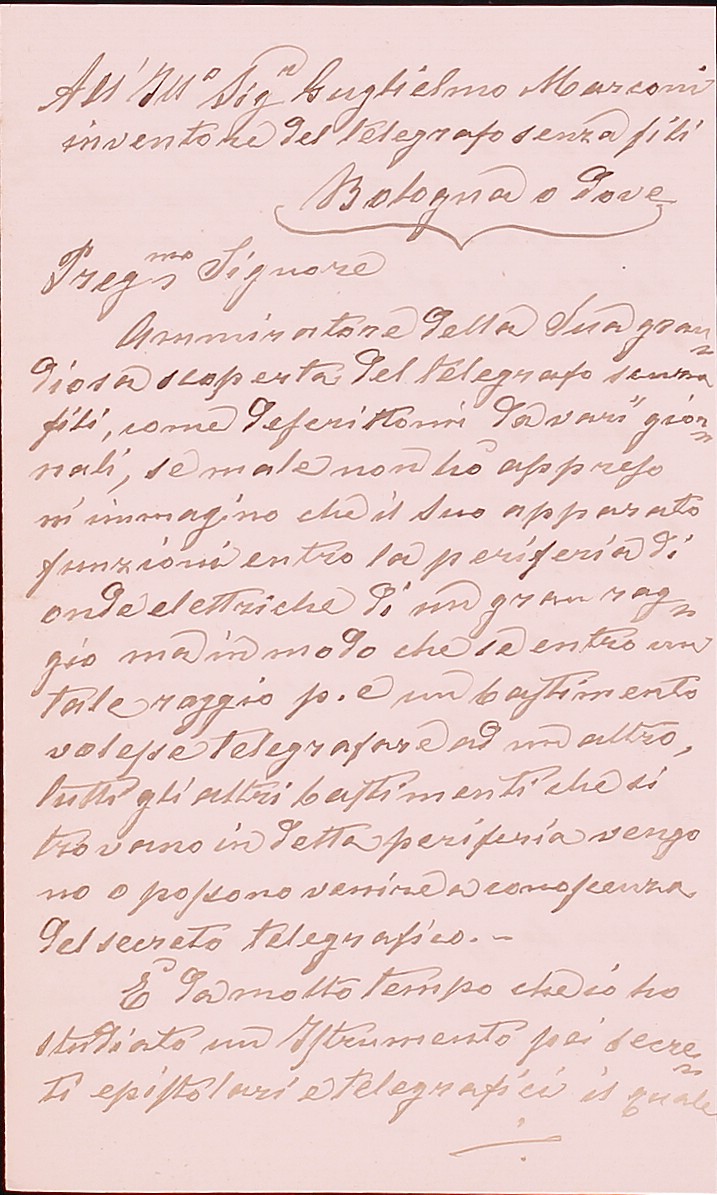 All' Ill.o Sig.r Guglielmo Marconi
inventore del telegrafo senza fili
Bologna o dove
Preg.mo Signore
Ammiratore della Sua gran=
diosa scoperta del telegrafo senza
fili, come descrittomi da varî gior=
nali, se male non ho appreso
m'immagino che il Suo apparato
funzioni entro la periferia di
onde elettriche di un gran rag=
gio ma in modo che se entro un
tale raggio p. e un bastimento
volesse telegrafare ad un altro,
tutti gli altri bastimenti che si
trovano in detta periferia vengo
no o possono venire a conoscenza
del secreto telegrafico. –
È da molto tempo che io ho
studiato un Istrumento pei secre=
ti epistolari e telegrafici il quale